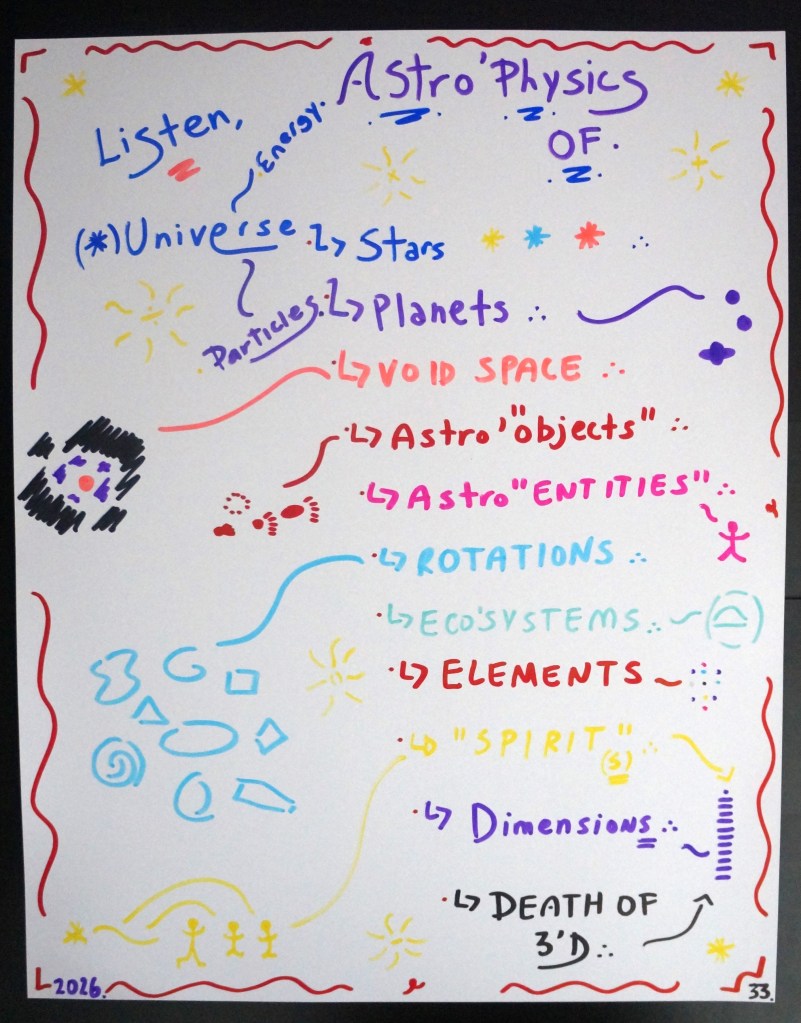 Astro'Physics
OF.
Listen,
Energy.
(*)Universe
Stars
Particles.
Planets
VOID SPACE
Astro'"objects"
Astro"ENTITIES"
ROTATIONS
ECO'SYSTEMS
ELEMENTS
"SPIRIT"
(s)
Dimensions
DEATH OF
3'D
2026.
33.